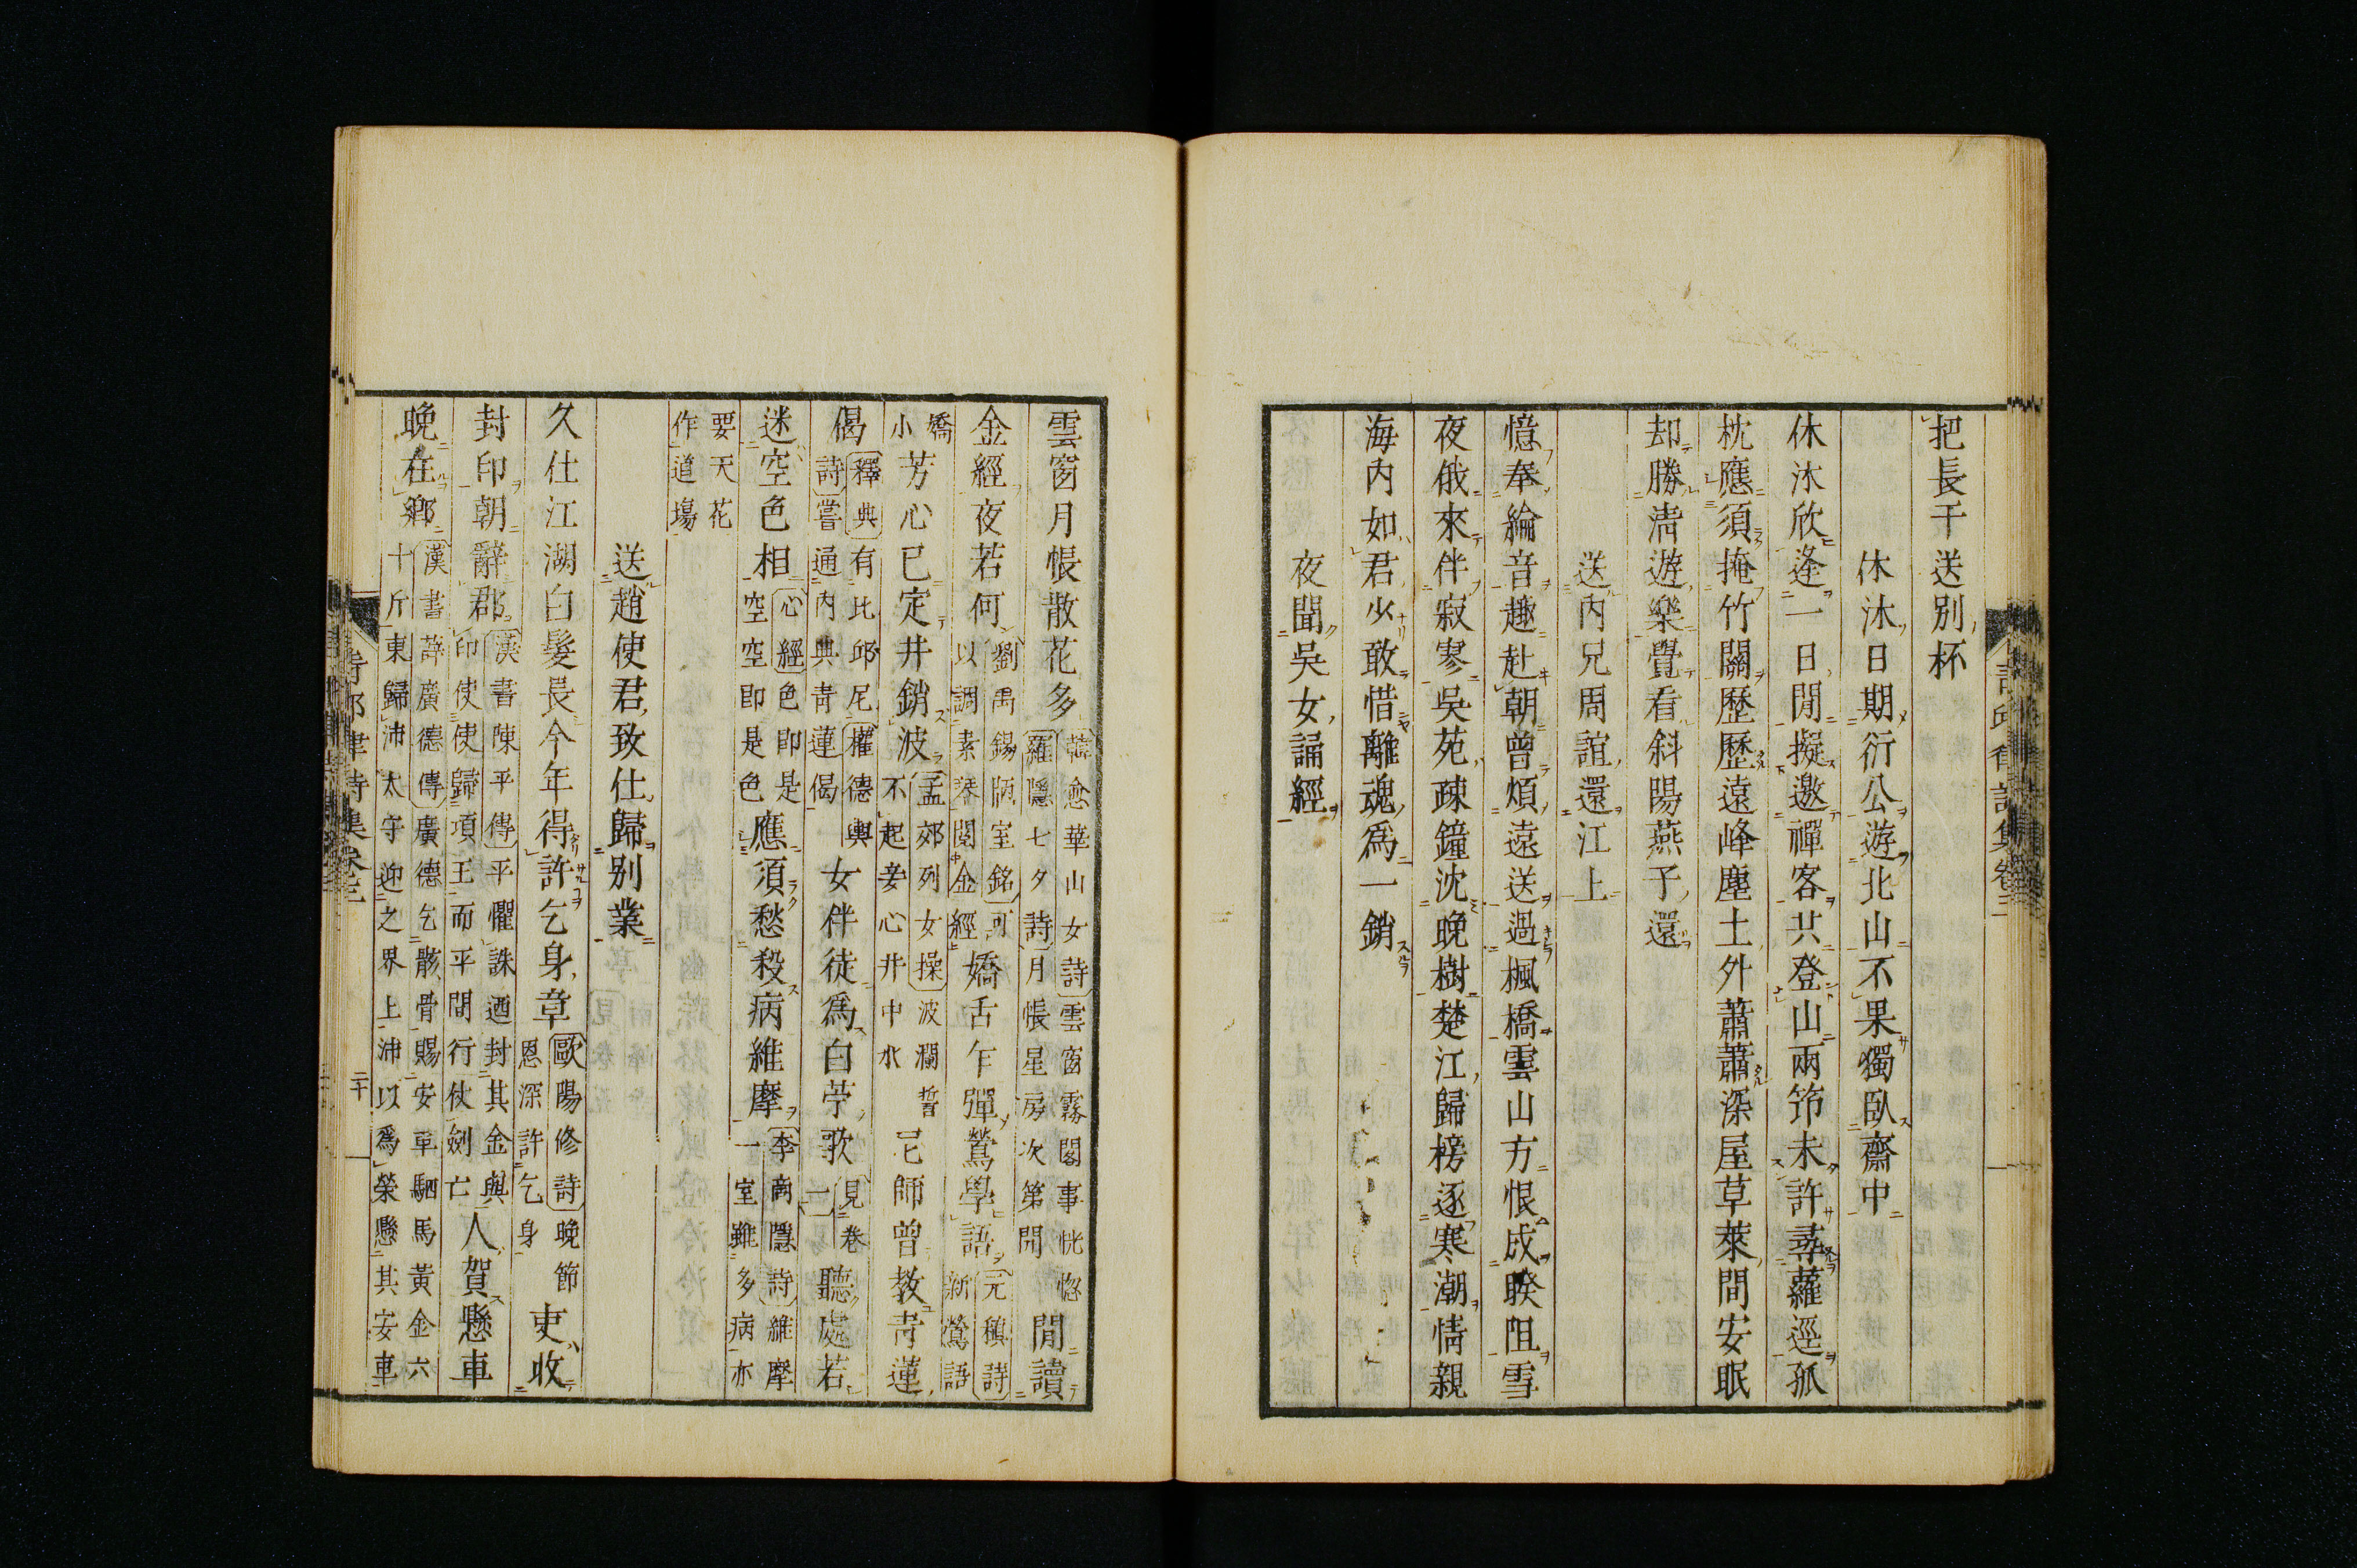 把長干送別杯
休沐日期衍公遊北山不果獨臥齋中
休沐欣逢一日閒擬邀禪客共登山兩筇未許尋蘿逕孤
枕應須掩竹關歷歷遠峰塵土外蕭蕭深屋草萊間安眠
却勝淸遊樂覺看斜陽燕子還
送內兄周誼還江上
憶奉綸音趣赴朝曾煩遠送過楓橋雲山方恨成暌阻雪
夜俄來伴寂寥吳苑疎鐘沈晚樹楚江歸榜逐寒潮情親
海內如君少敢惜離魂爲一銷
夜聞吳女誦經
雲窗月帳散花多韓愈華山女詩雲窗霧閣事恍惚羅隱七夕詩月帳星房次第開閒讀
金經夜若何劉禹錫陋室銘可以調素琴閱金經嬌舌乍彈鶯學語元稹詩嬌
小新鶯語芳心已定井銷波孟郊列女操波瀾誓不起妾心井中水尼師曾教靑蓮
偈釋典有比邱尼權德輿詩嘗通內典靑蓮偈女伴徒爲白苧歌見卷二聽處若
迷空色相心經色卽是空空卽是色應須愁殺病維摩李商隱詩維摩一室雖多病亦
要天花作道場
送趙使君致仕歸别業
久仕江湖白髮長今年得許乞身章歐陽修詩晚節恩深許乞身吏收
封印朝辭郡漢書陳平傳平懼誅迺封其金與印使使歸項王而平間行仗劍亡人賀懸車
晚在鄉漢書薛廣德傳廣德乞骸骨賜安車駟馬黃金六十斤東歸沛太守迎之界上沛以爲榮懸其安車